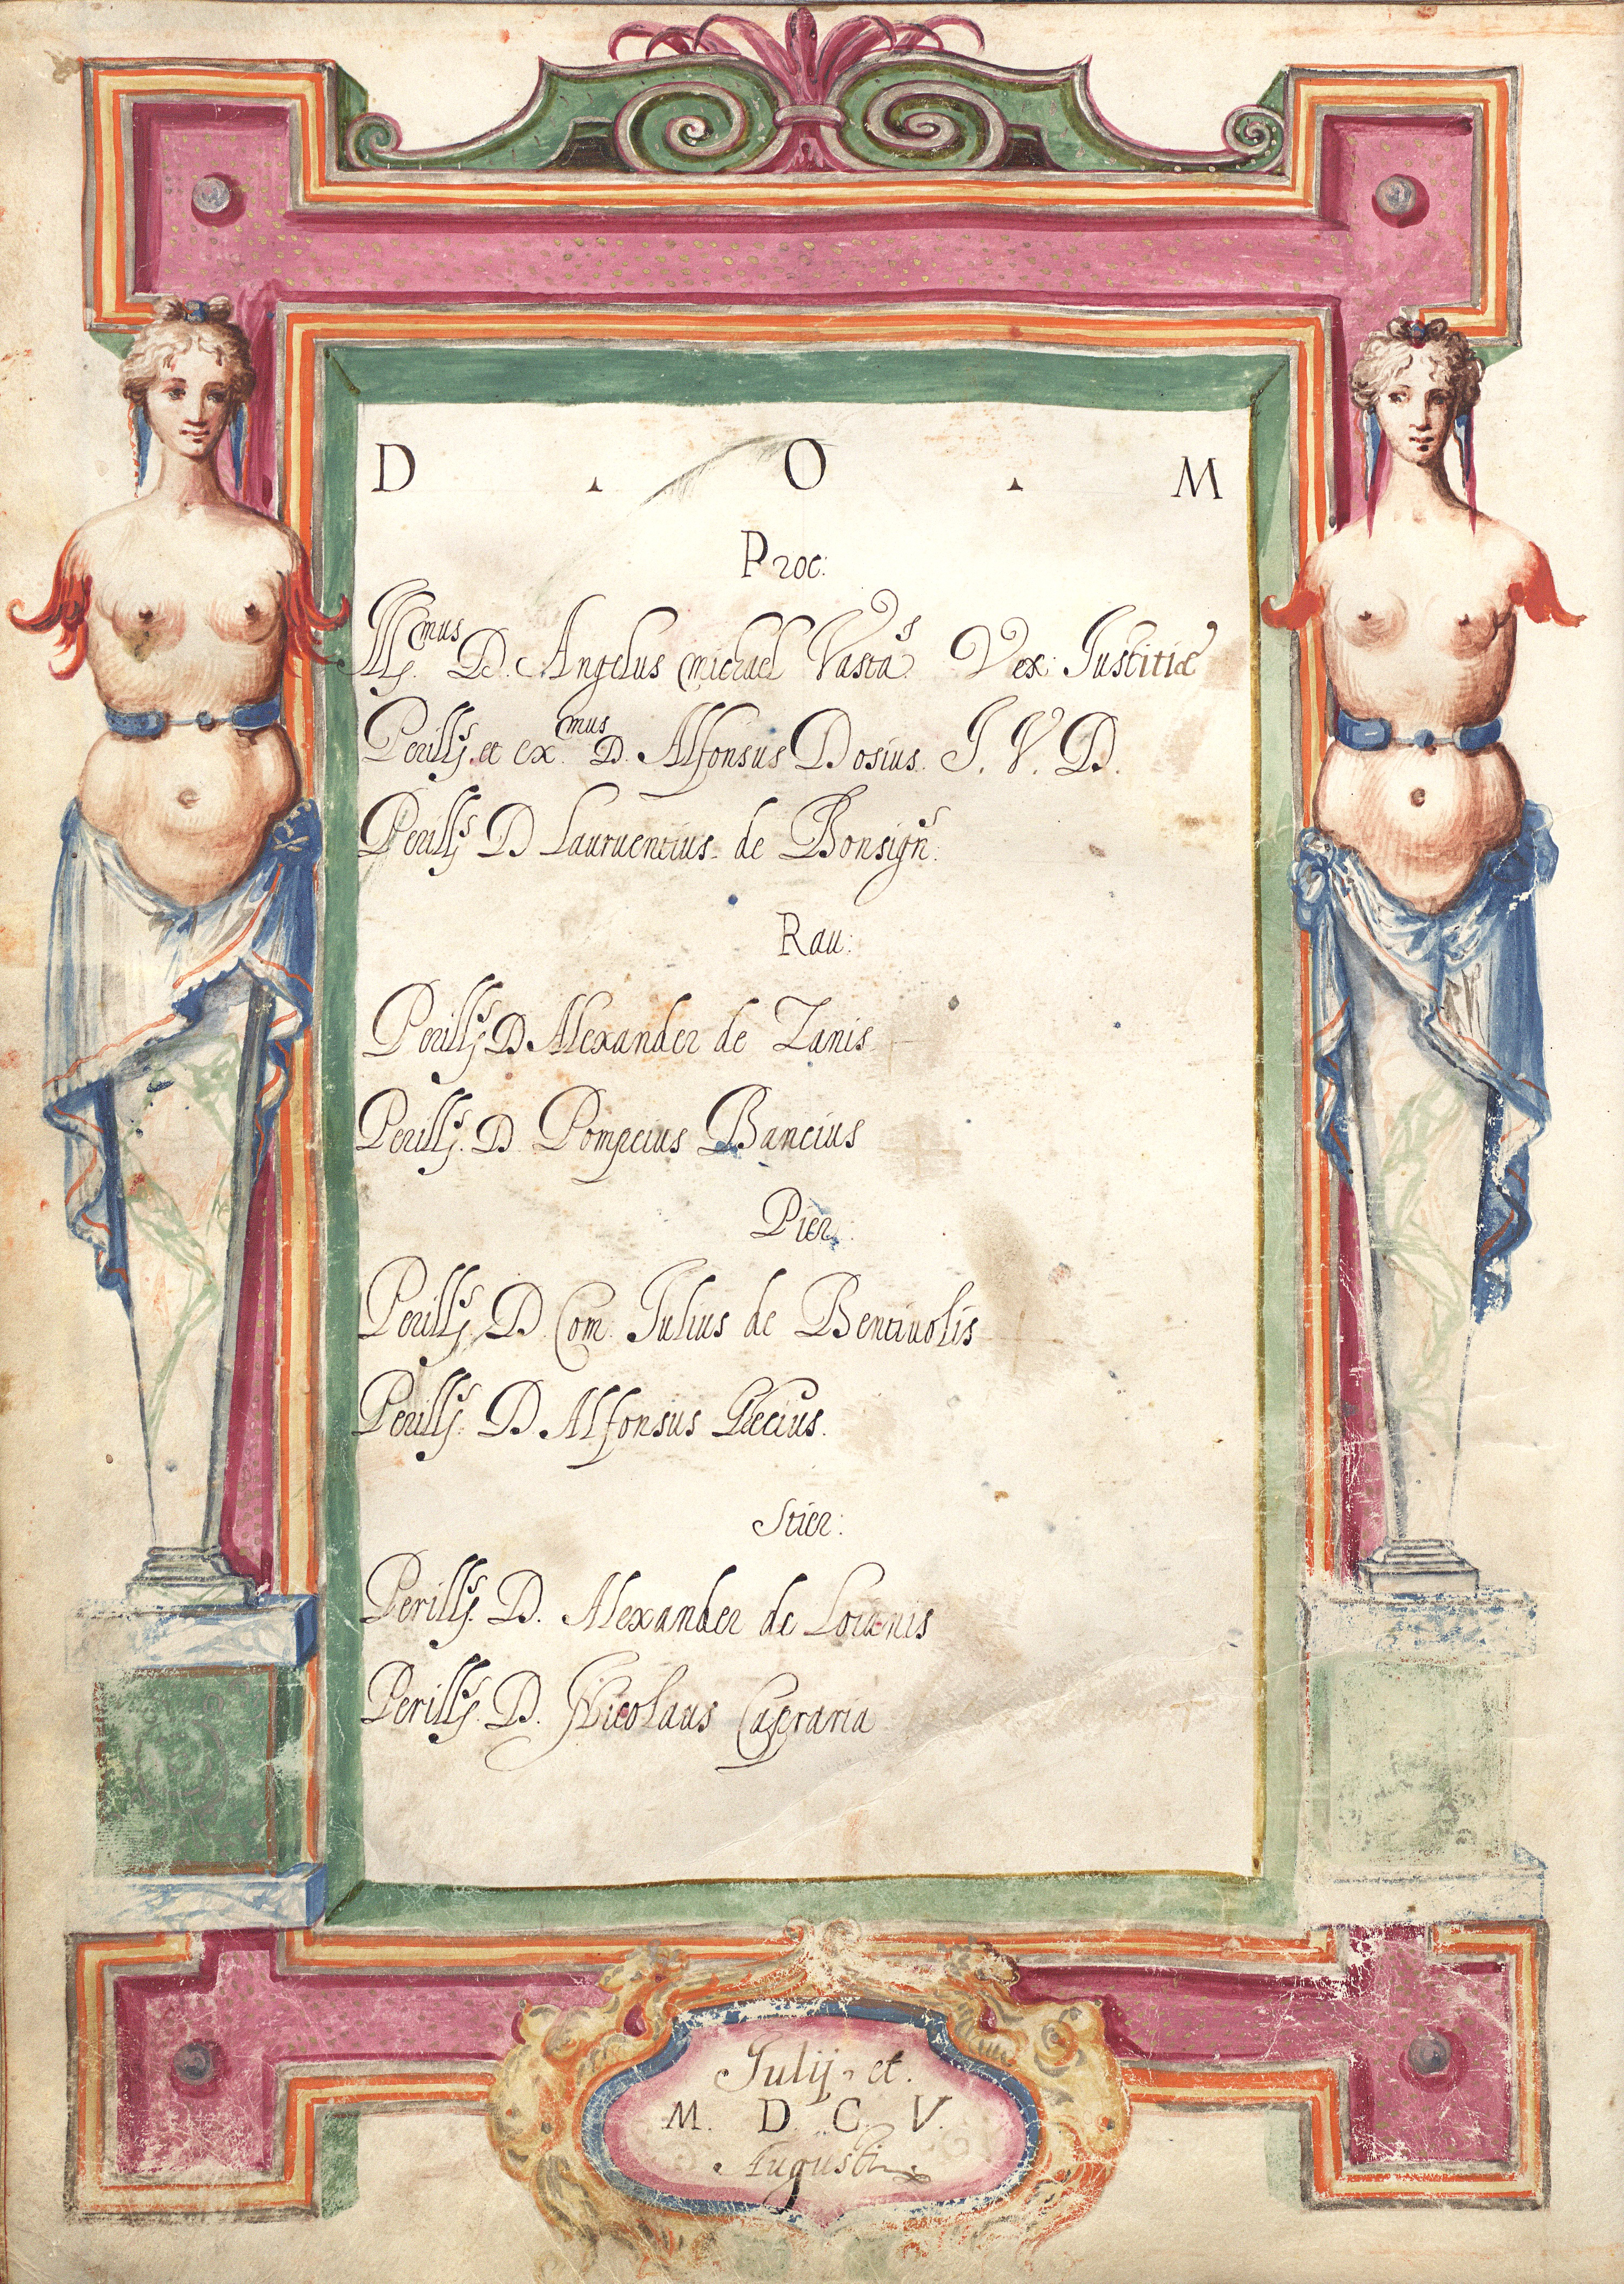 D . O . M
Proc:
Ill.mus D. Angelus michael Vasta.s Vex: Iustitiæ
Perill.s et ex.mus D. Alfonsus Dosius. I. V. D.
Perill.s D Lauruentius de Bonsign.s
Rau:
Perill.s D. Alexander de Zanis
Perill.s D. Pompeius Bancius
Pier.
Perill.s D. Com. Iulius de Bentiuolis
Perill.s D. Alfonsus
Stier:
Perill.s D. Alexander de Loianis
Perill.s D. Nicolaus Capraria
Iulij et.
M. D. C. V.
Augusti